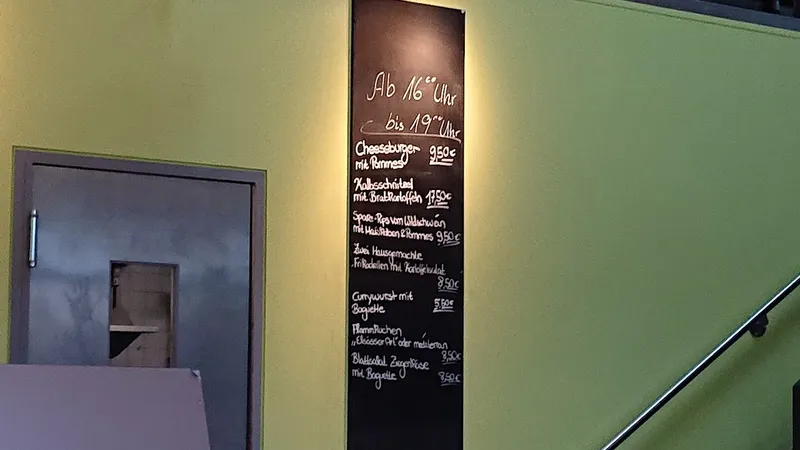 Ab 16⁰⁰ Uhr
bis 19⁰⁰ Uhr
Cheeseburger
mit Pommes 9,50€
Kalbsschnitzel
mit Bratkartoffeln 17,50€
Spare-Rips vom Wildschwein
mit & Pommes 9,50€
Zwei Hausgemachte
Frikadellen mit Kartoffelsalat
8,50€
Currywurst mit
Baguette 5,50€
Flammkuchen
„Elsässer Art" oder mediterran
8,50€
Blattsalat Ziegenkäse
mit Baguette 8,50€